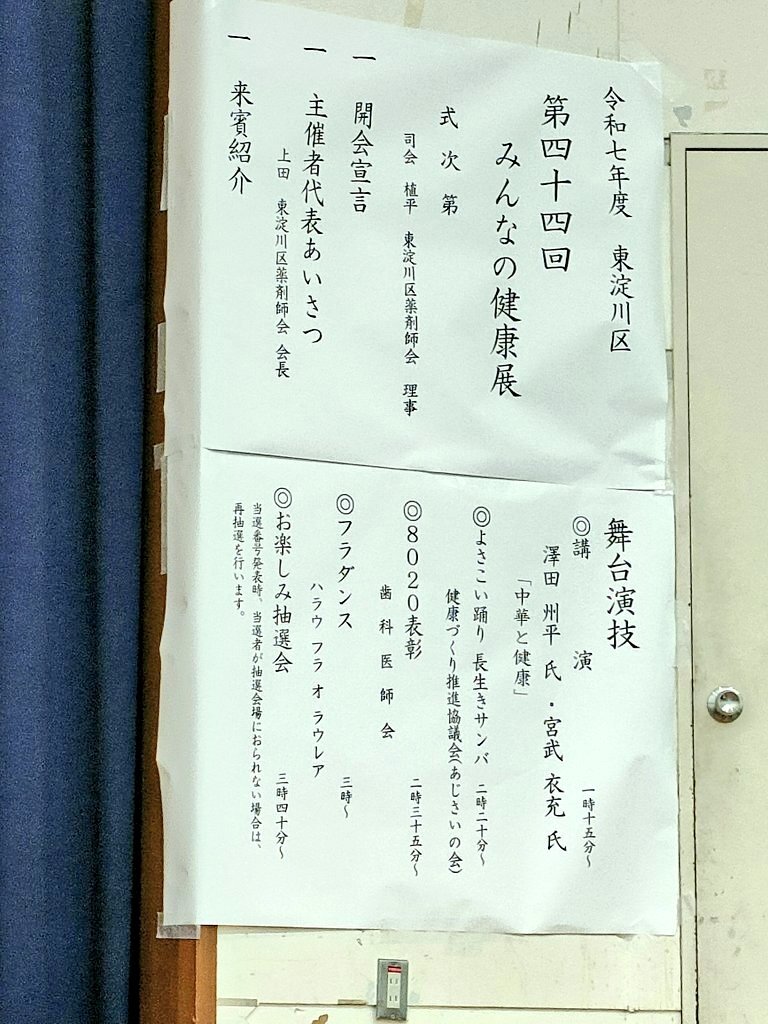 令和七年度 東淀川区
第四十四回
みんなの健康展
式次第
司会 植平 東淀川区薬剤師会 理事
一 開会宣言
一 主催者代表あいさつ
上田 東淀川区薬剤師会 会長
一 来賓紹介
舞台演技
◎講演 一時十五分~
澤田 州平 氏・宮武 衣充 氏
「中華と健康」
◎よさこい踊り 長生きサンバ 二時二十分~
健康づくり推進協議会(あじさいの会)
◎8020表彰 二時三十五分~
歯科医師会
◎フラダンス 三時~
ハラウ フラ オ ラウレア
◎お楽しみ抽選会 三時四十分~
当選番号発表時、当選者が抽選会場におられない場合は、
再抽選を行います。